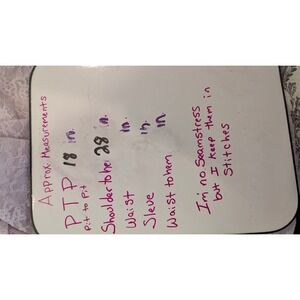 Approx. Measurements
PTP 18 in.
Pit to Pit
Shoulder to hem 28 in.
Waist in.
Sleve in.
Waist to hem in
I'm no Seamstress
but I keep them in
Stitches